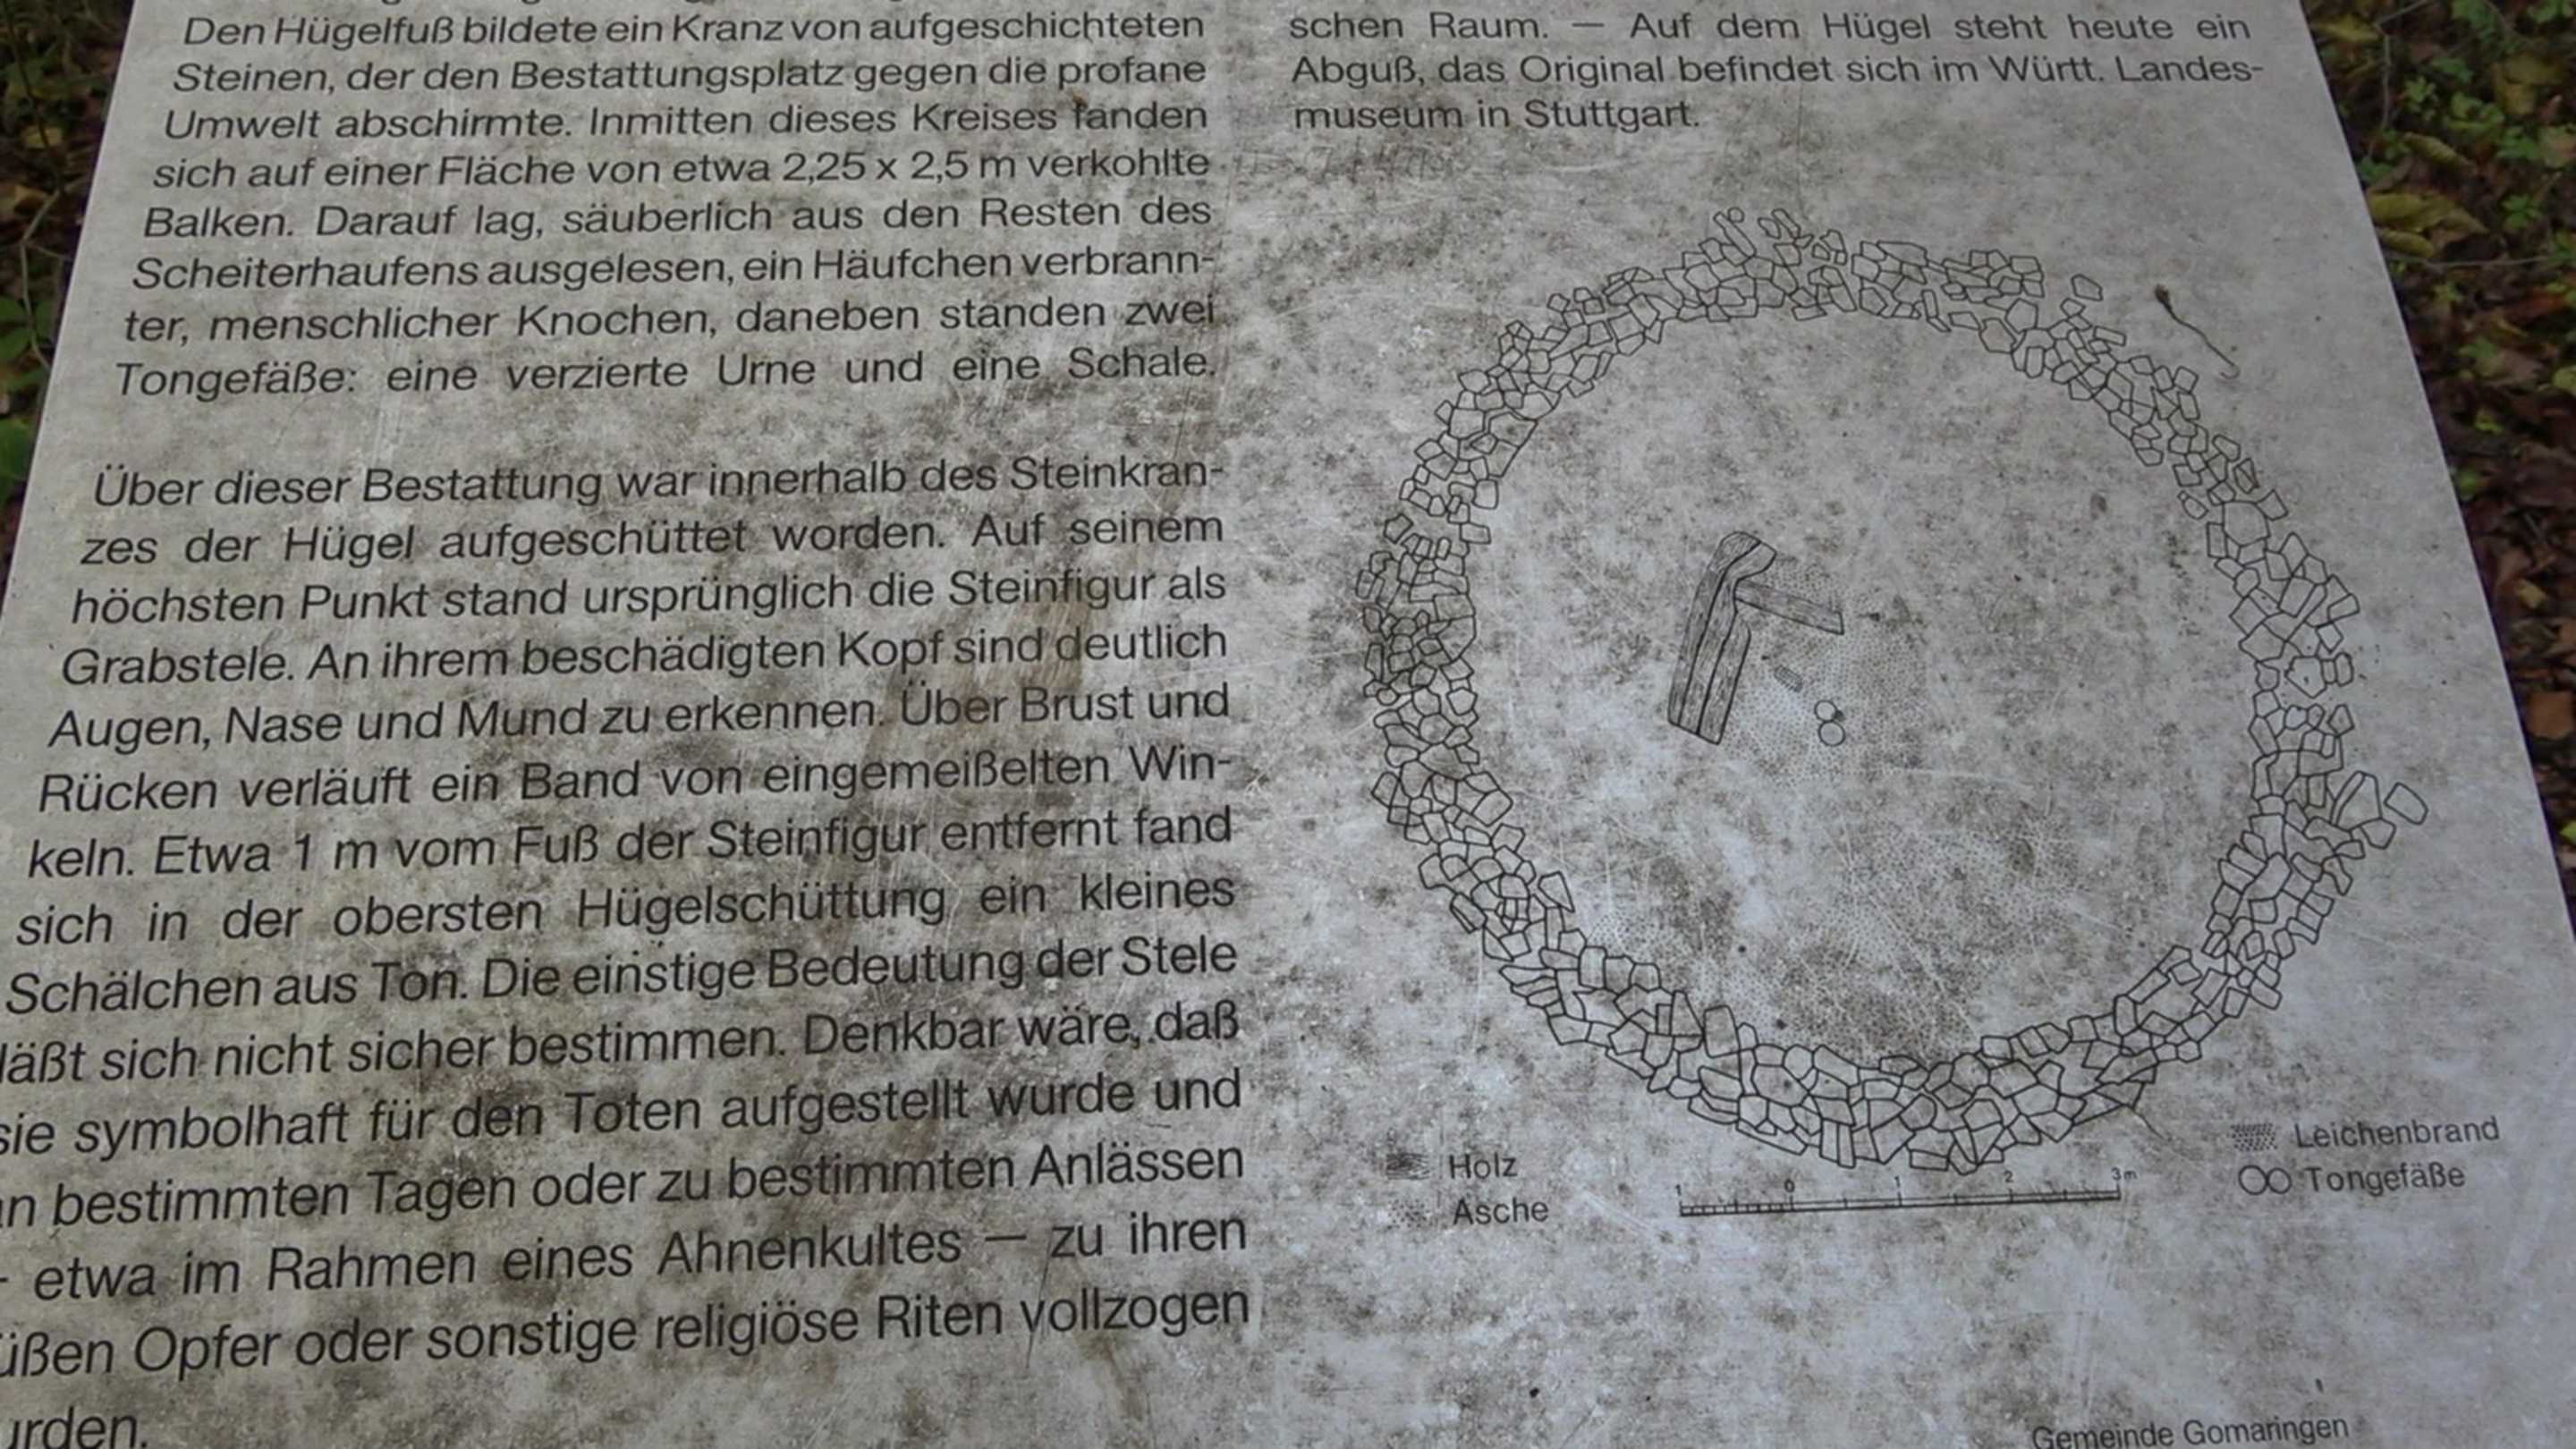 Den Hügelfuß bildete ein Kranz von aufgeschichteten
Steinen, der den Bestattungsplatz gegen die profane
Umwelt abschirmte. Inmitten dieses Kreises fanden
sich auf einer Fläche von etwa 2,25 x 2,5 m verkohlte
Balken. Darauf lag, säuberlich aus den Resten des
Scheiterhaufens ausgelesen, ein Häufchen verbrann-
ter, menschlicher Knochen, daneben standen zwei
Tongefäße: eine verzierte Urne und eine Schale.
Über dieser Bestattung war innerhalb des Steinkran-
zes der Hügel aufgeschüttet worden. Auf seinem
höchsten Punkt stand ursprünglich die Steinfigur als
Grabstele. An ihrem beschädigten Kopf sind deutlich
Augen, Nase und Mund zu erkennen. Über Brust und
Rücken verläuft ein Band von eingemeißelten Win-
keln. Etwa 1 m vom Fuß der Steinfigur entfernt fand
sich in der obersten Hügelschüttung ein kleines
Schälchen aus Ton. Die einstige Bedeutung der Stele
läßt sich nicht sicher bestimmen. Denkbar wäre, daß
sie symbolhaft für den Toten aufgestellt wurde und
an bestimmten Tagen oder zu bestimmten Anlässen
- etwa im Rahmen eines Ahnenkultes — zu ihren
üßen Opfer oder sonstige religiöse Riten vollzogen
urden.
schen Raum. — Auf dem Hügel steht heute ein
Abguß, das Original befindet sich im Württ. Landes-
museum in Stuttgart.
Holz
Asche
1 0 1 2 3 m
Leichenbrand
Tongefäße
Gemeinde Gomaringen